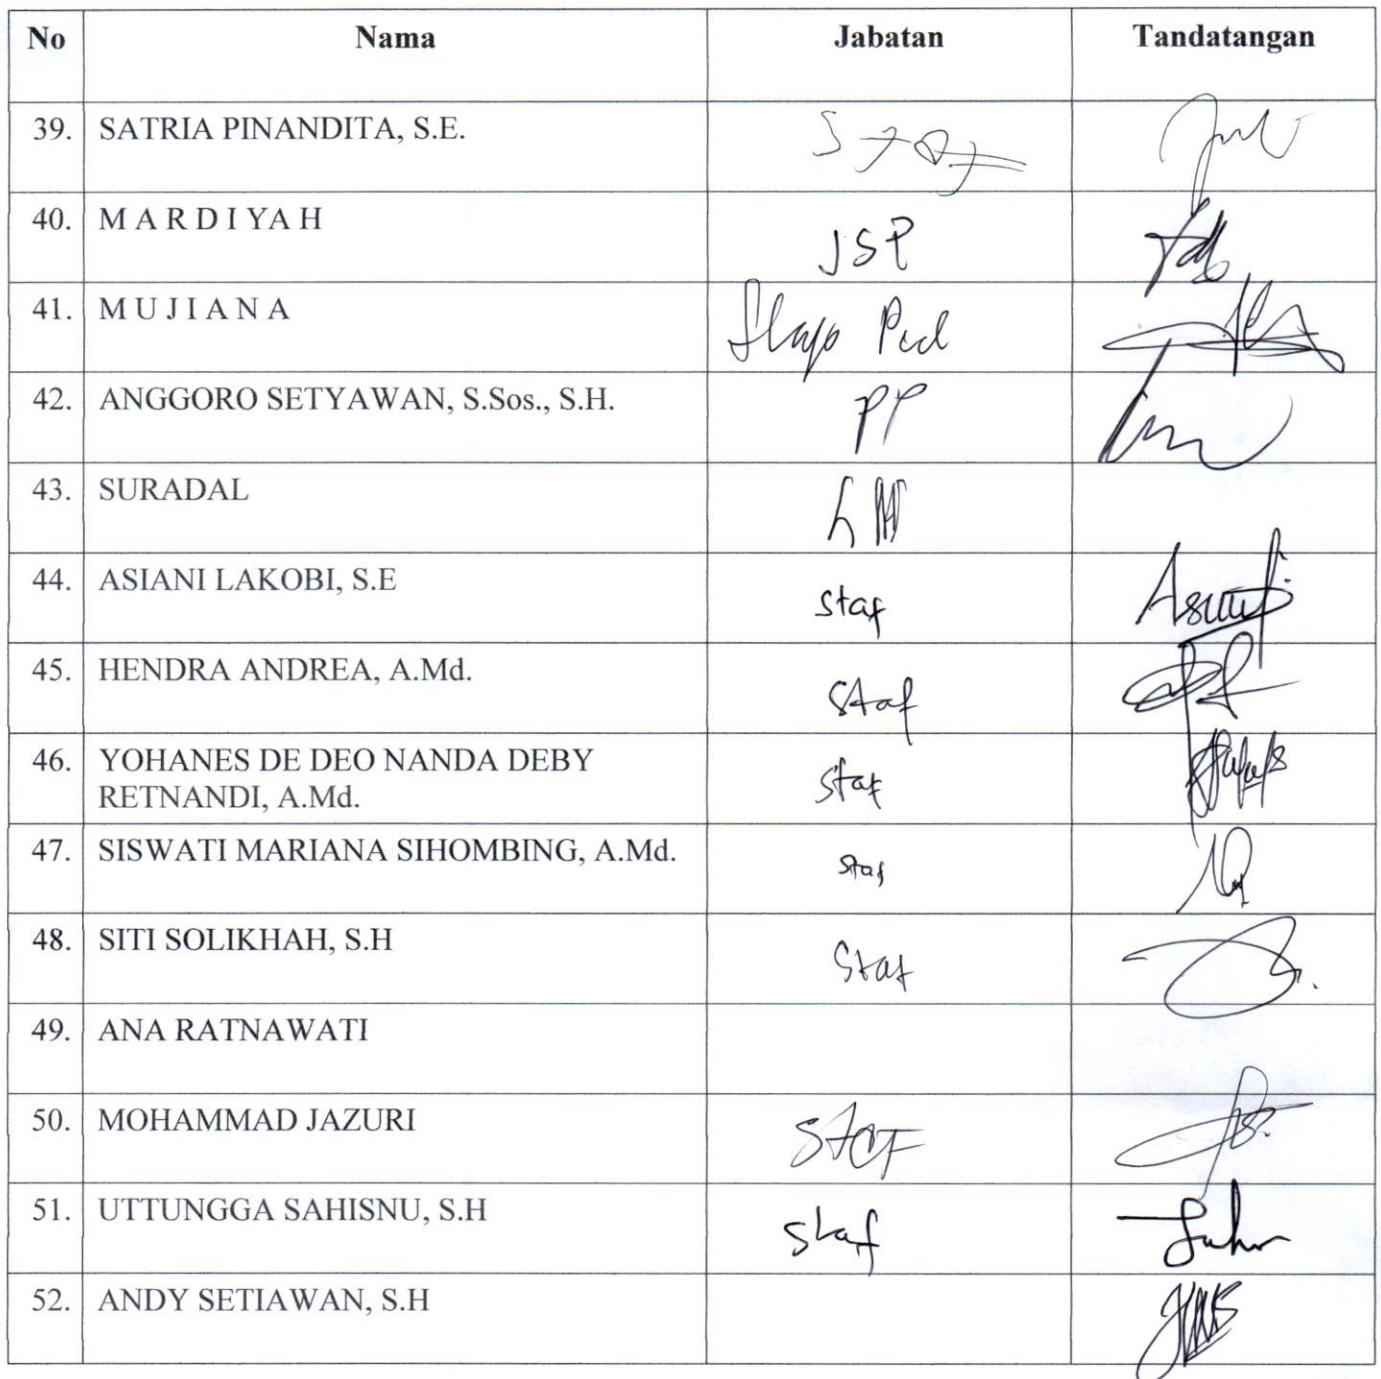 No Nama Jabatan Tandatangan
39. SATRIA PINANDITA, S.E. Staf
40. M A R D I YA H JSP
41. M U J I A N A
42. ANGGORO SETYAWAN, S.Sos., S.H. PP
43. SURADAL
44. ASIANI LAKOBI, S.E staf
45. HENDRA ANDREA, A.Md. staf
46. YOHANES DE DEO NANDA DEBY staf
RETNANDI, A.Md.
47. SISWATI MARIANA SIHOMBING, A.Md. staf
48. SITI SOLIKHAH, S.H Staf
49. ANA RATNAWATI
50. MOHAMMAD JAZURI STAF
51. UTTUNGGA SAHISNU, S.H staf
52. ANDY SETIAWAN, S.H